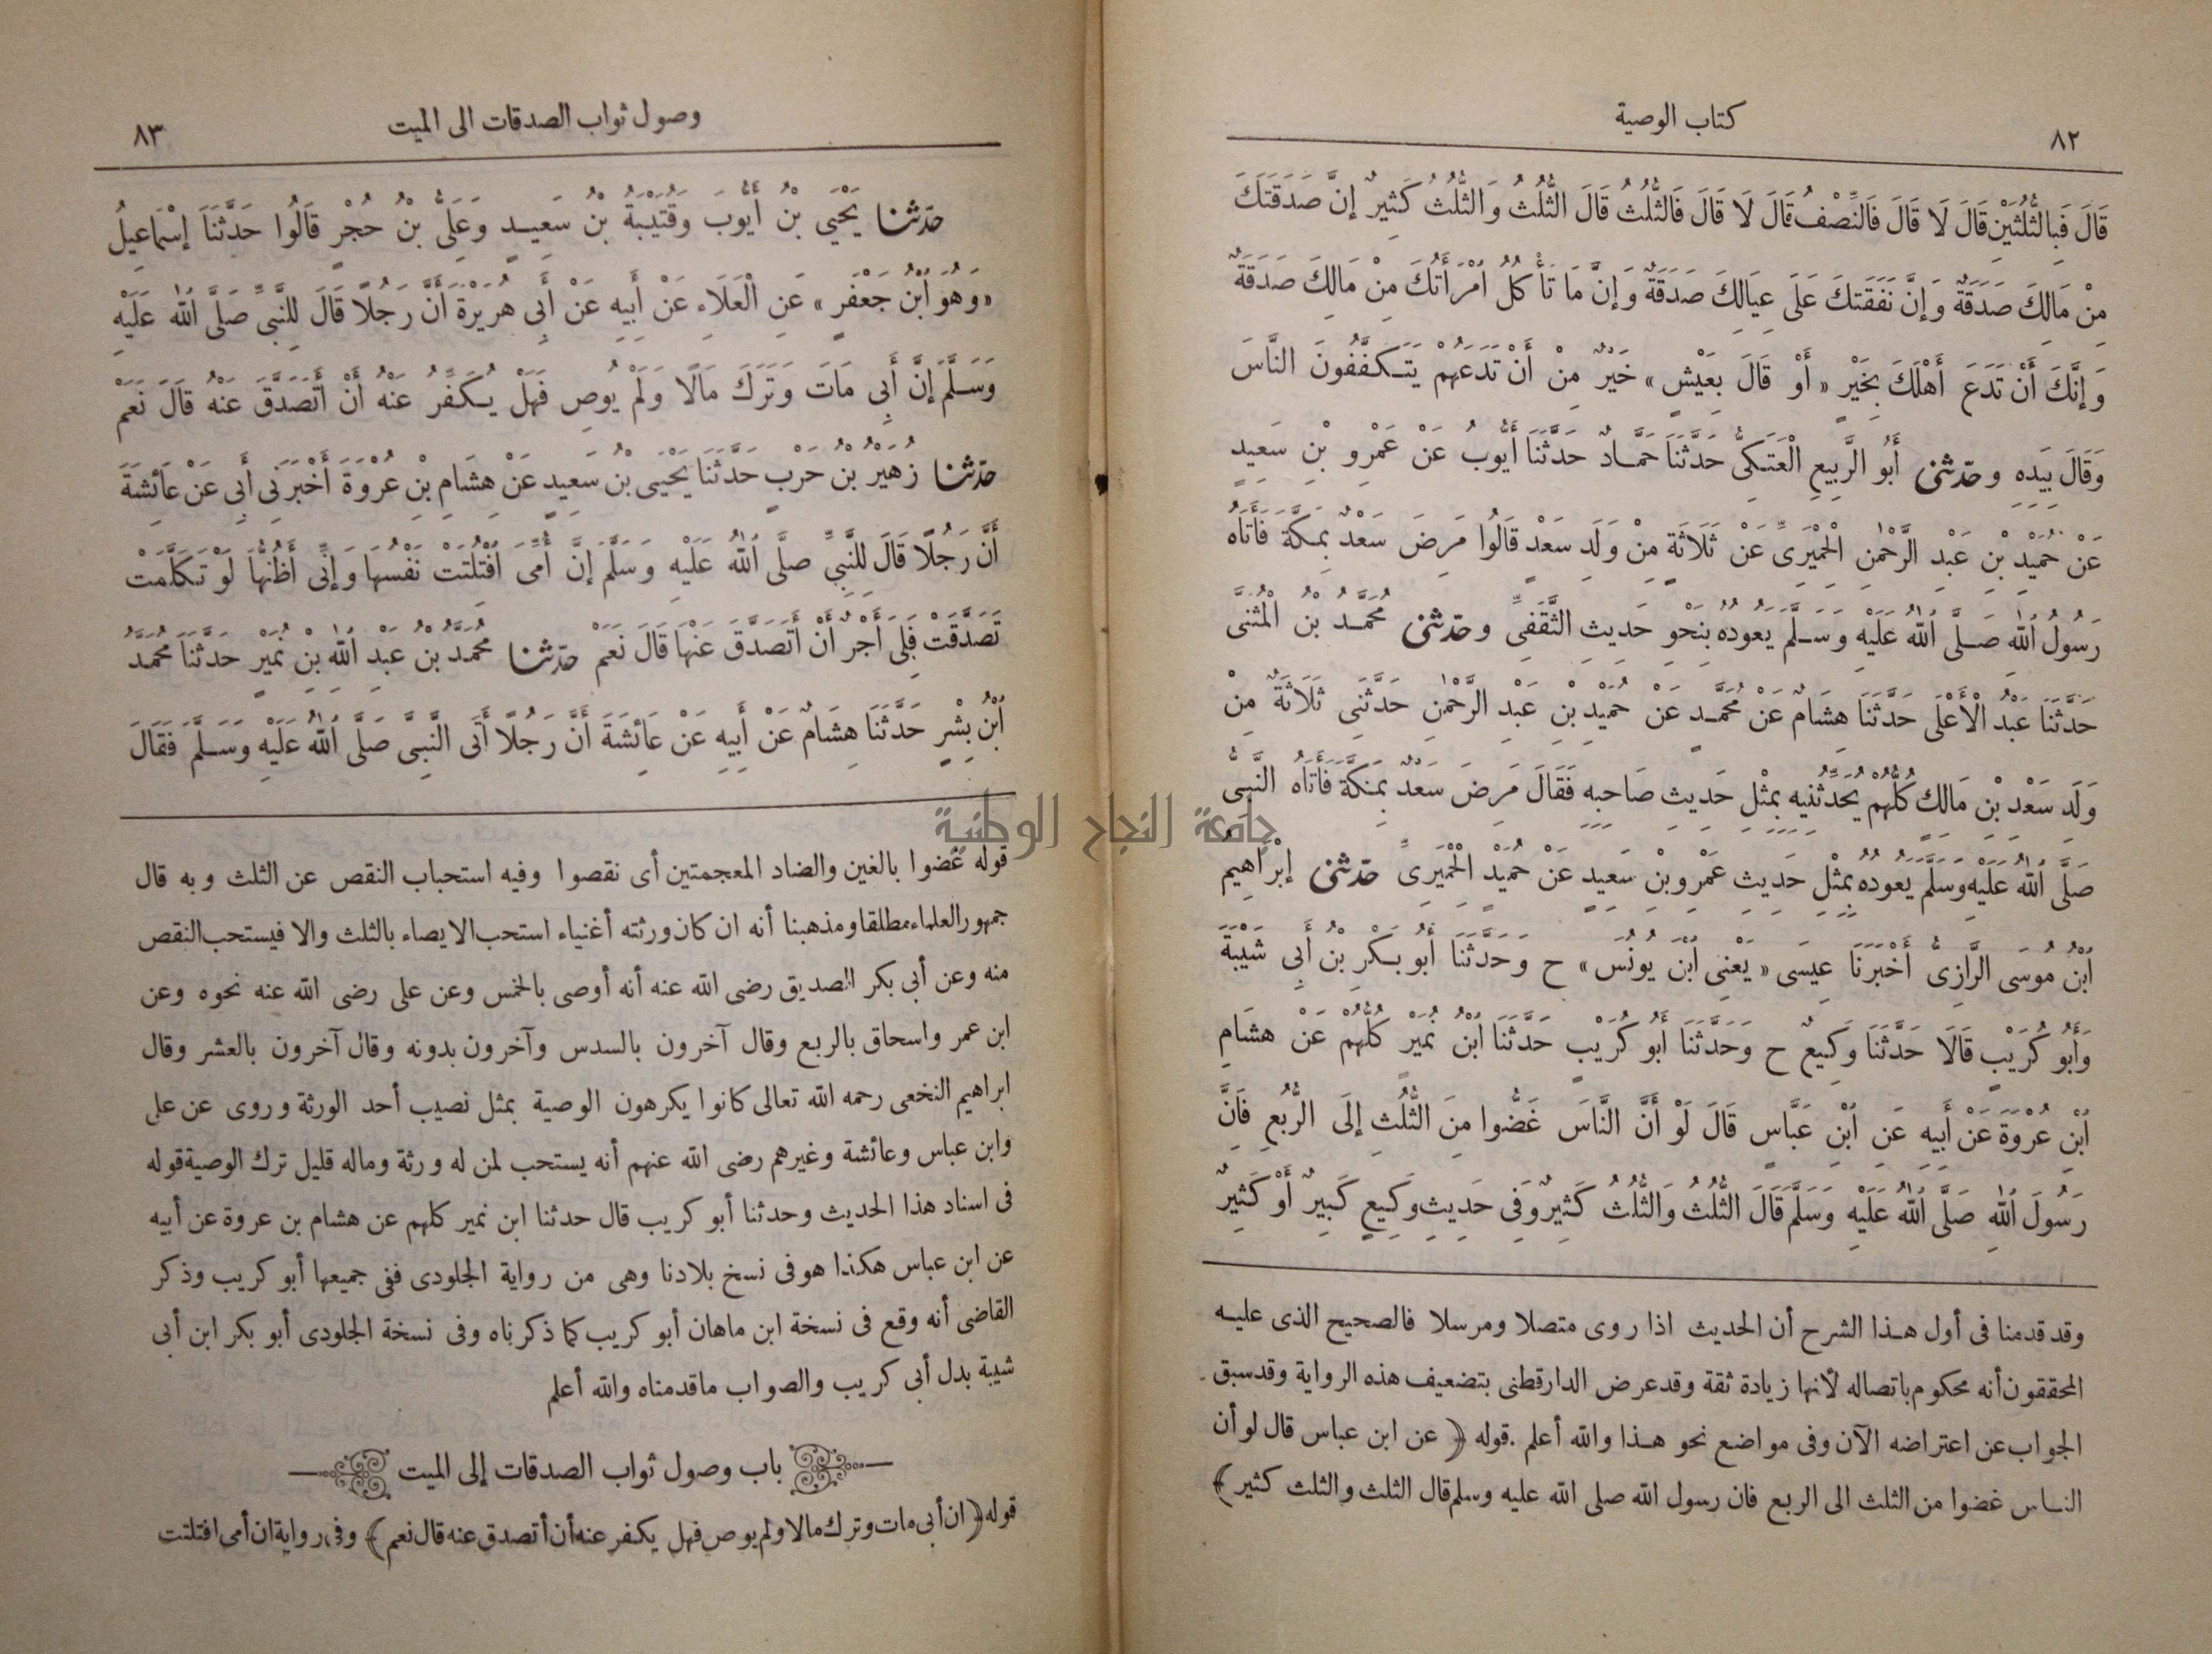 ٨٢
كتاب الوصية
قَالَ فَبِالثُّلُثَيْنِ قَالَ لَا قَالَ فَالنِّصْفُ قَالَ لَا قَالَ فَالثُّلُثُ قَالَ الثُّلُثُ وَالثُّلُثُ كَثِيرٌ إِنَّ صَدَقَتَكَ
مِنْ مَالِكَ صَدَقَةٌ وَإِنَّ نَفَقَتَكَ عَلَى عِيَالِكَ صَدَقَةٌ وَإِنَّ مَا تَأْكُلُ امْرَأَتُكَ مِنْ مَالِكَ صَدَقَةٌ
وَإِنَّكَ أَنْ تَدَعَ أَهْلَكَ بِخَيْرٍ «أَوْ قَالَ بِعَيْشٍ» خَيْرٌ مِنْ أَنْ تَدَعَهُمْ يَتَكَفَّفُونَ النَّاسَ
وَقَالَ بِيَدِهِ وحَدَّثَنِى أَبُو الرَّبِيعِ الْعَتَكِىُّ حَدَّثَنَا حَمَّادٌ حَدَّثَنَا أَيُّوبُ عَنْ عَمْرِو بْنِ سَعِيدٍ
عَنْ حُمَيْدِ بْنِ عَبْدِ الرَّحْمٰنِ الْحِمْيَرِىِّ عَنْ ثَلَاثَةٍ مِنْ وَلَدِ سَعْدٍ قَالُوا مَرِضَ سَعْدٌ بِمَكَّةَ فَأَتَاهُ
رَسُولُ اللّٰهِ صَلَّى اللّٰهُ عَلَيْهِ وَسَلَّمَ يَعُودُهُ بِنَحْوِ حَدِيثِ الثَّقَفِىِّ وحَدَّثَنِى مُحَمَّدُ بْنُ الْمُثَنَّى
حَدَّثَنَا عَبْدُ الْأَعْلَى حَدَّثَنَا هِشَامٌ عَنْ مُحَمَّدٍ عَنْ حُمَيْدِ بْنِ عَبْدِ الرَّحْمٰنِ حَدَّثَنِى ثَلَاثَةٌ مِنْ
وَلَدِ سَعْدِ بْنِ مَالِكٍ كُلُّهُمْ يُحَدِّثُنِيهِ بِمِثْلِ حَدِيثِ صَاحِبِهِ فَقَالَ مَرِضَ سَعْدٌ بِمَكَّةَ فَأَتَاهُ النَّبِىُّ
صَلَّى اللّٰهُ عَلَيْهِ وَسَلَّمَ يَعُودُهُ بِمِثْلِ حَدِيثِ عَمْرِو بْنِ سَعِيدٍ عَنْ حُمَيْدٍ الْحِمْيَرِىِّ حَدَّثَنِى إِبْرَاهِيمُ
ابْنُ مُوسَى الرَّازِىُّ أَخْبَرَنَا عِيسَى «يَعْنِى ابْنَ يُونُسَ» ح وَحَدَّثَنَا أَبُو بَكْرِ بْنُ أَبِى شَيْبَةَ
وَأَبُو كُرَيْبٍ قَالَا حَدَّثَنَا وَكِيعٌ ح وَحَدَّثَنَا أَبُو كُرَيْبٍ حَدَّثَنَا ابْنُ نُمَيْرٍ كُلُّهُمْ عَنْ هِشَامِ
ابْنِ عُرْوَةَ عَنْ أَبِيهِ عَنِ ابْنِ عَبَّاسٍ قَالَ لَوْ أَنَّ النَّاسَ غَضُّوا مِنَ الثُّلُثِ إِلَى الرُّبُعِ فَإِنَّ
رَسُولَ اللّٰهِ صَلَّى اللّٰهُ عَلَيْهِ وَسَلَّمَ قَالَ الثُّلُثُ وَالثُّلُثُ كَثِيرٌ وَفِى حَدِيثِ وَكِيعٍ كَبِيرٌ أَوْ كَثِيرٌ
وقد قدمنا فى أول هذا الشرح أن الحديث اذا روى متصلا ومرسلا فالصحيح الذى عليه
المحققون أنه محكوم باتصاله لأنها زيادة ثقة وقد عرض الدارقطنى بتضعيف هذه الرواية وقد سبق
الجواب عن اعتراضه الآن وفى مواضع نحو هذا والله أعلم . قوله ﴿ عن ابن عباس قال لو أن
الناس غضوا من الثلث الى الربع فان رسول الله صلى الله عليه وسلم قال الثلث والثلث كثير ﴾
وصول ثواب الصدقات الى الميت
٨٣
حَدَّثَنَا يَحْيَى بْنُ أَيُّوبَ وَقُتَيْبَةُ بْنُ سَعِيدٍ وَعَلِىُّ بْنُ حُجْرٍ قَالُوا حَدَّثَنَا إِسْمَاعِيلُ
«وَهُوَ ابْنُ جَعْفَرٍ» عَنِ الْعَلَاءِ عَنْ أَبِيهِ عَنْ أَبِى هُرَيْرَةَ أَنَّ رَجُلًا قَالَ لِلنَّبِىِّ صَلَّى اللّٰهُ عَلَيْهِ
وَسَلَّمَ إِنَّ أَبِى مَاتَ وَتَرَكَ مَالًا وَلَمْ يُوصِ فَهَلْ يُكَفِّرُ عَنْهُ أَنْ أَتَصَدَّقَ عَنْهُ قَالَ نَعَمْ
حَدَّثَنَا زُهَيْرُ بْنُ حَرْبٍ حَدَّثَنَا يَحْيَى بْنُ سَعِيدٍ عَنْ هِشَامِ بْنِ عُرْوَةَ أَخْبَرَنِى أَبِى عَنْ عَائِشَةَ
أَنَّ رَجُلًا قَالَ لِلنَّبِىِّ صَلَّى اللّٰهُ عَلَيْهِ وَسَلَّمَ إِنَّ أُمِّىَ افْتُلِتَتْ نَفْسُهَا وَإِنِّى أَظُنُّهَا لَوْ تَكَلَّمَتْ
تَصَدَّقَتْ فَلِىَ أَجْرٌ أَنْ أَتَصَدَّقَ عَنْهَا قَالَ نَعَمْ حَدَّثَنَا مُحَمَّدُ بْنُ عَبْدِ اللّٰهِ بْنِ نُمَيْرٍ حَدَّثَنَا مُحَمَّدُ
ابْنُ بِشْرٍ حَدَّثَنَا هِشَامٌ عَنْ أَبِيهِ عَنْ عَائِشَةَ أَنَّ رَجُلًا أَتَى النَّبِىَّ صَلَّى اللّٰهُ عَلَيْهِ وَسَلَّمَ فَقَالَ
جامعة النجاح الوطنية
قوله غضوا بالغين والضاد المعجمتين أى نقصوا وفيه استحباب النقص عن الثلث وبه قال
جمهور العلماء مطلقا ومذهبنا أنه ان كان ورثته أغنياء استحب الايصاء بالثلث والا فيستحب النقص
منه وعن أبى بكر الصديق رضى الله عنه أنه أوصى بالخمس وعن على رضى الله عنه نحوه وعن
ابن عمر واسحاق بالربع وقال آخرون بالسدس وآخرون بدونه وقال آخرون بالعشر وقال
ابراهيم النخعى رحمه الله تعالى كانوا يكرهون الوصية بمثل نصيب أحد الورثة وروى عن على
وابن عباس وعائشة وغيرهم رضى الله عنهم أنه يستحب لمن له ورثة وماله قليل ترك الوصية قوله
فى اسناد هذا الحديث وحدثنا أبو كريب قال حدثنا ابن نمير كلهم عن هشام بن عروة عن أبيه
عن ابن عباس هكذا هو فى نسخ بلادنا وهى من رواية الجلودى ففى جميعها أبو كريب وذكر
القاضى أنه وقع فى نسخة ابن ماهان أبو كريب كما ذكرناه وفى نسخة الجلودى أبو بكر ابن أبى
شيبة بدل أبى كريب والصواب ماقدمناه والله أعلم
باب وصول ثواب الصدقات إلى الميت
قوله ﴿ ان أبى مات وترك مالا ولم يوص فهل يكفر عنه أن أتصدق عنه قال نعم ﴾ وفى رواية ان أمى افتلتت